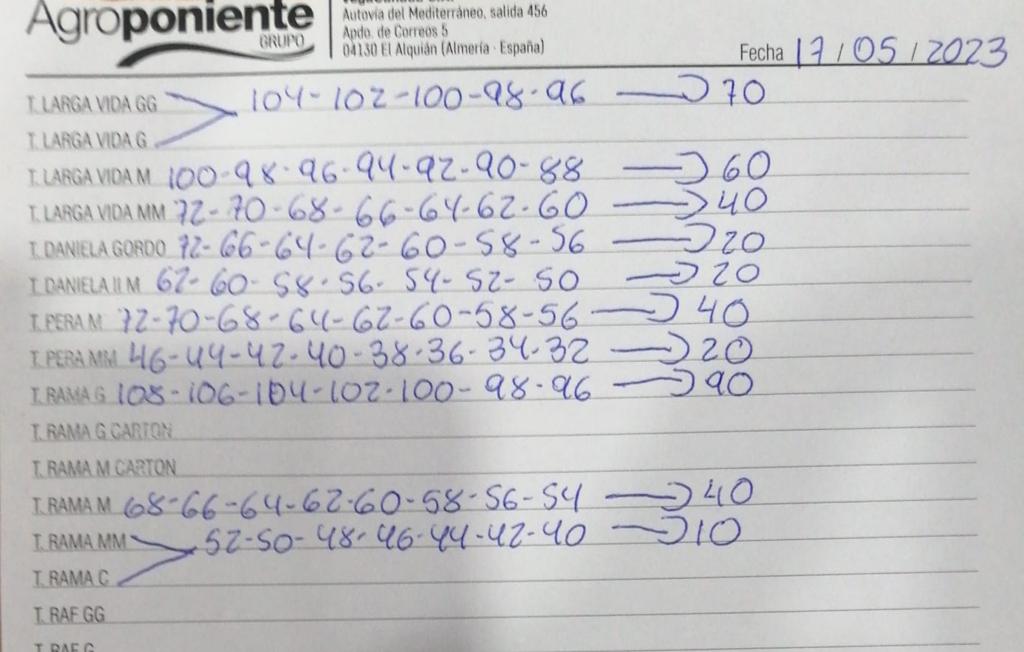 Agroponiente
GRUPO
Autovía del Mediterráneo, salida 456
Apdo. de Correos 5
04130 El Alquián (Almería - España)
Fecha 17/05/2023
T. LARGA VIDA GG 104-102-100-98-96 → 70
T. LARGA VIDA G
T. LARGA VIDA M 100-98-96-94-92-90-88 → 60
T. LARGA VIDA MM 72-70-68-66-64-62-60 → 40
T. DANIELA GORDO 72-66-64-62-60-58-56 → 20
T. DANIELA II M 62-60-58-56-54-52-50 → 20
T. PERA M 72-70-68-64-62-60-58-56 → 40
T. PERA MM 46-44-42-40-38-36-34-32 → 20
T. RAMA G 108-106-104-102-100-98-96 → 90
T. RAMA G CARTON
T. RAMA M CARTON
T. RAMA M 68-66-64-62-60-58-56-54 → 40
T. RAMA MM 52-50-48-46-44-42-40 → 10
T. RAMA C
T. RAF GG
T. RAF G